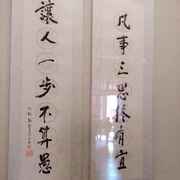 凡事三思終有宜
讓人一步不算愚